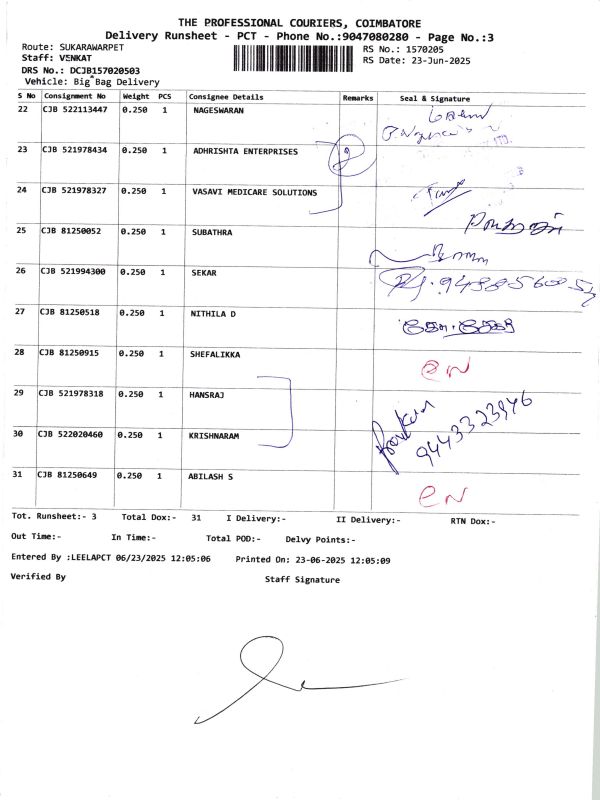 THE PROFESSIONAL COURIERS, COIMBATORE
Delivery Runsheet - PCT - Phone No.:9047080280 - Page No.:3
Route: SUKARAWARPET
RS No.: 1570205
Staff: VENKAT
RS Date: 23-Jun-2025
DRS No.: DCJB157020503
Vehicle: Big Bag Delivery
S No Consignment No Weight PCS Consignee Details Remarks Seal & Signature
22 CJB 522113447 0.250 1 NAGESWARAN
23 CJB 521978434 0.250 1 ADHRISHTA ENTERPRISES 2
24 CJB 521978327 0.250 1 VASAVI MEDICARE SOLUTIONS
25 CJB 81250052 0.250 1 SUBATHRA
26 CJB 521994300 0.250 1 SEKAR
27 CJB 81250518 0.250 1 NITHILA D
28 CJB 81250915 0.250 1 SHEFALIKKA en
29 CJB 521978318 0.250 1 HANSRAJ
9443323946
30 CJB 522020460 0.250 1 KRISHNARAM
31 CJB 81250649 0.250 1 ABILASH S en
Tot. Runsheet:- 3 Total Dox:- 31 I Delivery:- II Delivery:- RTN Dox:-
Out Time:- In Time:- Total POD:- Delvy Points:-
Entered By :LEELAPCT 06/23/2025 12:05:06 Printed On: 23-06-2025 12:05:09
Verified By Staff Signature